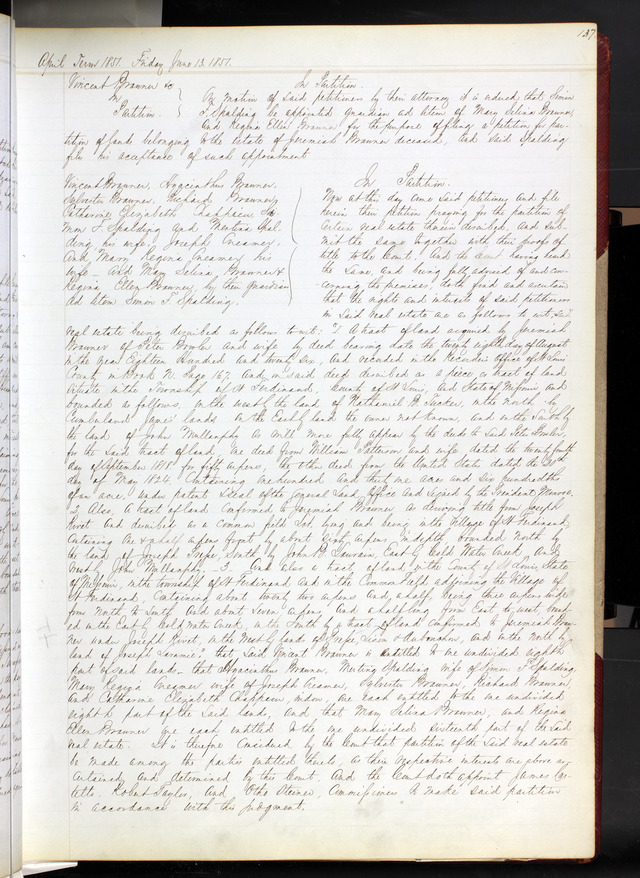 137
April Term 1851. Friday June 13, 1851.
Vincent Brawner &c
In
Partition.
In Partition.
On motion of said petitioners by their attorney it is ordered that Simon
T. Spalding be appointed guardian ad litem of Mary Selina Brawner
and Regina Ellen Brawner for the purpose of filing a petition for par-
tition of lands belonging to the estate of Jeremiah Brawner deceased, and said Spalding
files his acceptance of such appointment.
Vincent Brawner, Hyacinthus Brawner,
Sylvester Brawner, Richard Brawner,
Catharine Elizabeth Chappain Si
mon T. Spalding and Martina Spal-
ding his wife, Joseph Creamer,
And Mary Regina Creamer his
wife - And Mary Selina Brawner &
Regina Ellen Brawner, by their Guardian
ad litem Simon T. Spalding.
In Partition.
Now at this day come said petitioners and file
herein their petition praying for the partition of
certain real estate therein described, and sub-
mit the same together with their proofs of
title to the Court. And the Court having heard
the same, and being fully advised of and con-
cerning the premises, doth find and ascertain
that the rights and interests of said petitioners
in said real estate are as follows to wit: said
real estate being described as follows to wit: "1 A tract of land acquired by Jeremiah
Brawner of Peter Fowler and wife by deed bearing date the twenty eighth day of August
in the year Eighteen Hundred and twenty six, and recorded in the Recorder's office of St Louis
County in Book N. Page 167, and in said deed described as a piece or tract of land
situate in the Township of St Ferdinand, County of St Louis, and State of Missouri and
bounded as follows, on the west by the land of Nathaniel B. Tucker, on the North by
Cumberland James' lands on the East by land the owner not known, and on the South by
the land of John Mullanphy as will more fully appear by the deeds to said Peter Fowler,
for the said tract of land One deed from William Patterson and wife dated the twenty fourth
day of September 1818 for fifty arpens, the other deed from the United States dated the
day of May 1824. Containing one hundred and thirty one acres and six hundredths
of an acre, under patent & Seal of the General Land Office and signed by the President Monroe.
2 Also, A tract of land confirmed to Jeremiah Brawner as deriving title from Joseph
Rivet and described as a common field lot lying and being in the Village of St Ferdinand,
containing one & a half arpens front by about Eight arpens in depth, bounded North by
the land of Joseph Tripe, South by John B. Lauvain, East by Cold Water Creek, And
West by John Mullanphy - 3 And also a tract of land in the County of St Louis, State
of Missouri, in the township of St Ferdinand and in the Common field adjoining the Village of
St Ferdinand, Containing about twenty two arpens and a half, being three arpens wide
from North to South And about seven arpens and a half long from East to west, bound-
ed on the East by Cold Water Creek, on the South by a tract of land confirmed to Jeremiah Braw-
ner under Joseph Rivet, on the West by lands of Tripe, and on the North by
land of Joseph Laramie" that said Vincent Brawner is entitled to one undivided eighth
part of said lands - that Hyacinthus Brawner, Martina Spalding wife of Simon T. Spalding
Mary Regina Creamer wife of Joseph Creamer, Sylvester Brawner, Richard Brawner
And Catharine Elizabeth Chappain, widow, are each entitled to the one undivided
eighth part of the said lands, and that Mary Selina Brawner, and Regina
Ellen Brawner are each entitled to the one undivided sixteenth part of the said
real estate. It is therefore Considered by the Court that partition of the said real estate
be made among the parties entitled thereto, as their respective interests are above as-
certained and determined by this Court, And the Court doth appoint James
Robert Taylor, And Otho Steiner, Commissioners to make said partition
in accordance with this judgment.